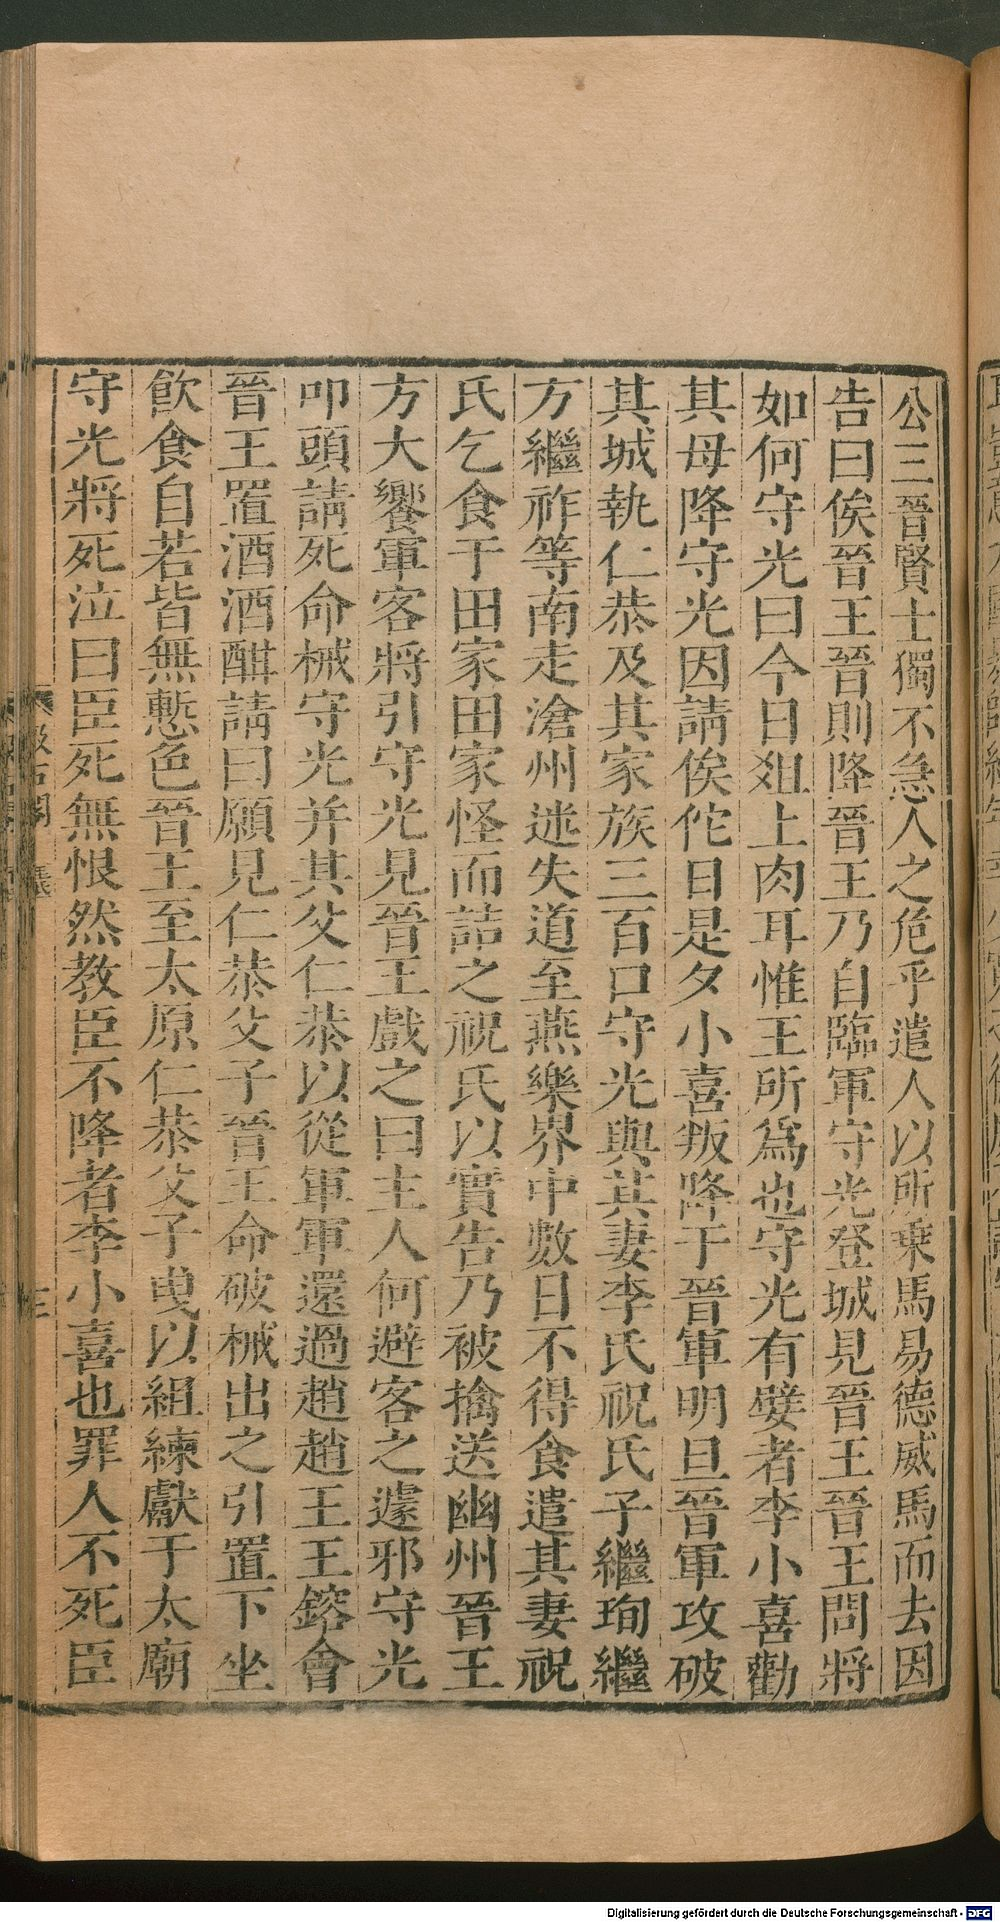 公三晉賢士獨不急人之危乎遣人以所乗馬易德威馬而去因
告曰俟晉王晉則降晉王乃自臨軍守光登城見晉王晉王問將
如何守光曰今日爼上肉耳惟王所爲也守光有嬖者李小喜勸
其母降守光因請俟佗日是夕小喜叛降于晉軍明旦晉軍攻破
其城執仁恭及其家族三百口守光與其妻李氏祝氏子繼珣繼
方繼祚等南走滄州迷失道至燕樂界中數日不得食遣其妻祝
氏乞食于田家田家怪而詰之祝氏以實告乃被擒送幽州晉王
方大饗軍客將引守光見晉王戲之曰主人何避客之遽邪守光
叩頭請死命械守光并其父仁恭以從軍軍還過趙趙王王鎔會
晉王置酒酒酣請曰願見仁恭父子晉王命破械出之引置下坐
飲食自若皆無慙色晉王至太原仁恭父子曳以組練獻于太廟
守光將死泣曰臣死無恨然教臣不降者李小喜也罪人不死臣
Digitalisierung gefördert durch die Deutsche Forschungsgemeinschaft - DFG